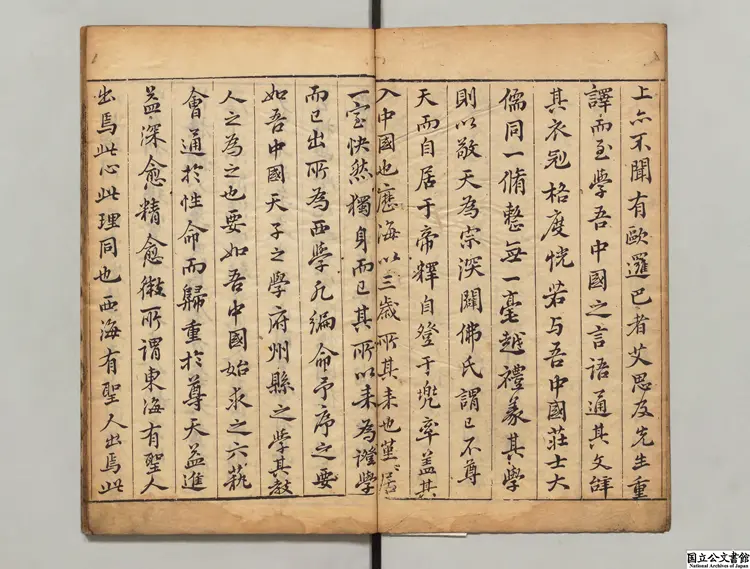 上亦不聞有歐邏巴者艾思及先生重
譯而至學吾中國之言語通其文辞
其衣冠格度恍若与吾中國莊士大
儒同一脩整毎一毫越禮篆其學
則以敬天為宗深闢佛氏謂已不尊
天而自居于帝釋自登于兠率盖其
入中國也歷海以三歳所其来也堇居
一室怏然獨身而已其所以来為證學
而已出所為西學凡編命予序之要
如吾中國天子之學府州縣之學其教
人之為之也要如吾中國始求之六萟
會通扵性命而歸重扵尊天益進
益深愈精愈微所謂東海有聖人
出焉此心此理同也西海有聖人出焉此
国立公文書館
National Archives of Japan